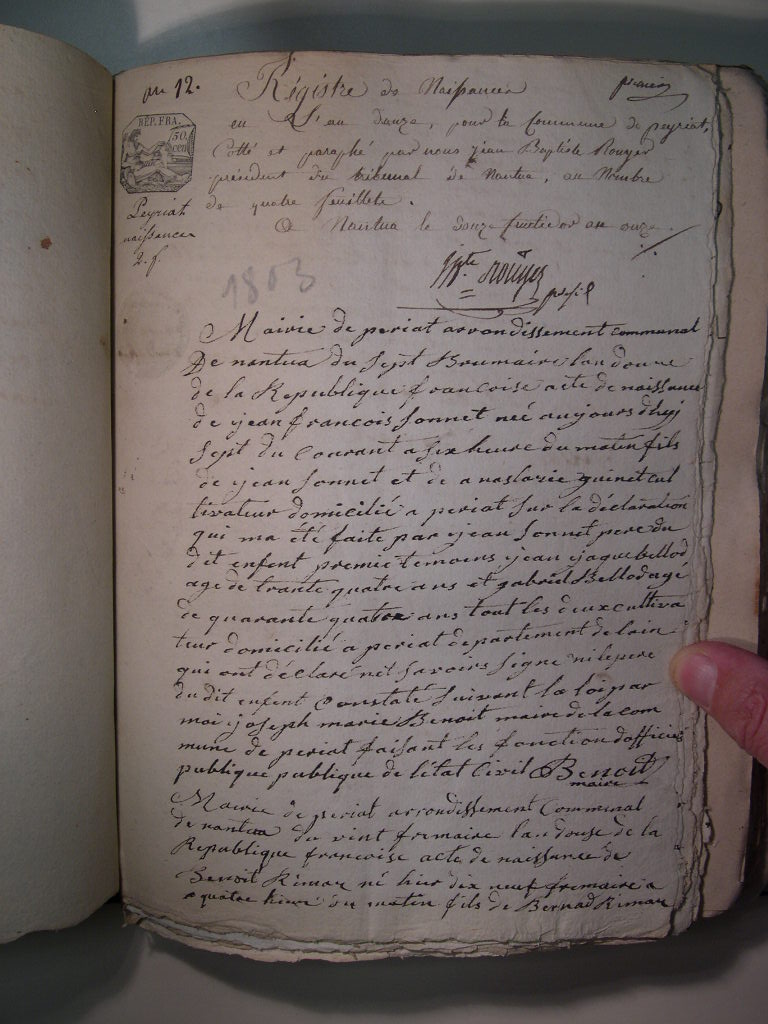 an 12.
Régistre de Naissances
premier
en L'an douze, pour la Commune de peyriat,
Cotté et paraphé par nous jean Baptiste Rouyer
président du tribunal de Nantua, au Nombre
de quatre feuillets.
A Nantua le douze fructidor an onze.
REP. FRA.
50
cen
Peyriat
naissances
2. f.
1803
Jn Bte Roüyer
présid
Mairie de periat arrondissement communal
De nantua du sept Brumaire lan douze
de la Republique francoise acte de naissance
de jean francois sonnet neé aujourd dhuj
sept du courant a six heure du matin fils
de jean sonnet et de anastazie guinet cul
tivateur domicilié a periat sur la déclaration
qui ma été faite par jean sonnet pere du
dit enfent premie temoins jean jaque bellod
age de trante quatre ans et gabriel Bellod agé
de quarante quatre ans tout les deux cultiva
teur domicilié a periat departement de lain
qui ont déclaré net savoirs signe ni le pere
du dit enfent Constaté suivant la loi par
moi joseph marie Benoit maire de la com
mune de periat faisant les fonction dofficié
publique publique de letat Civil Benoit
maire
Mairie de periat arrondissement Communal
de nantua du vint frimaire lan douse de la
Republique francoise acte de naissance de
Benoit Rimau né hier dix neuf frimaire a
a quatre heure du matin fils de Bernad Rimau